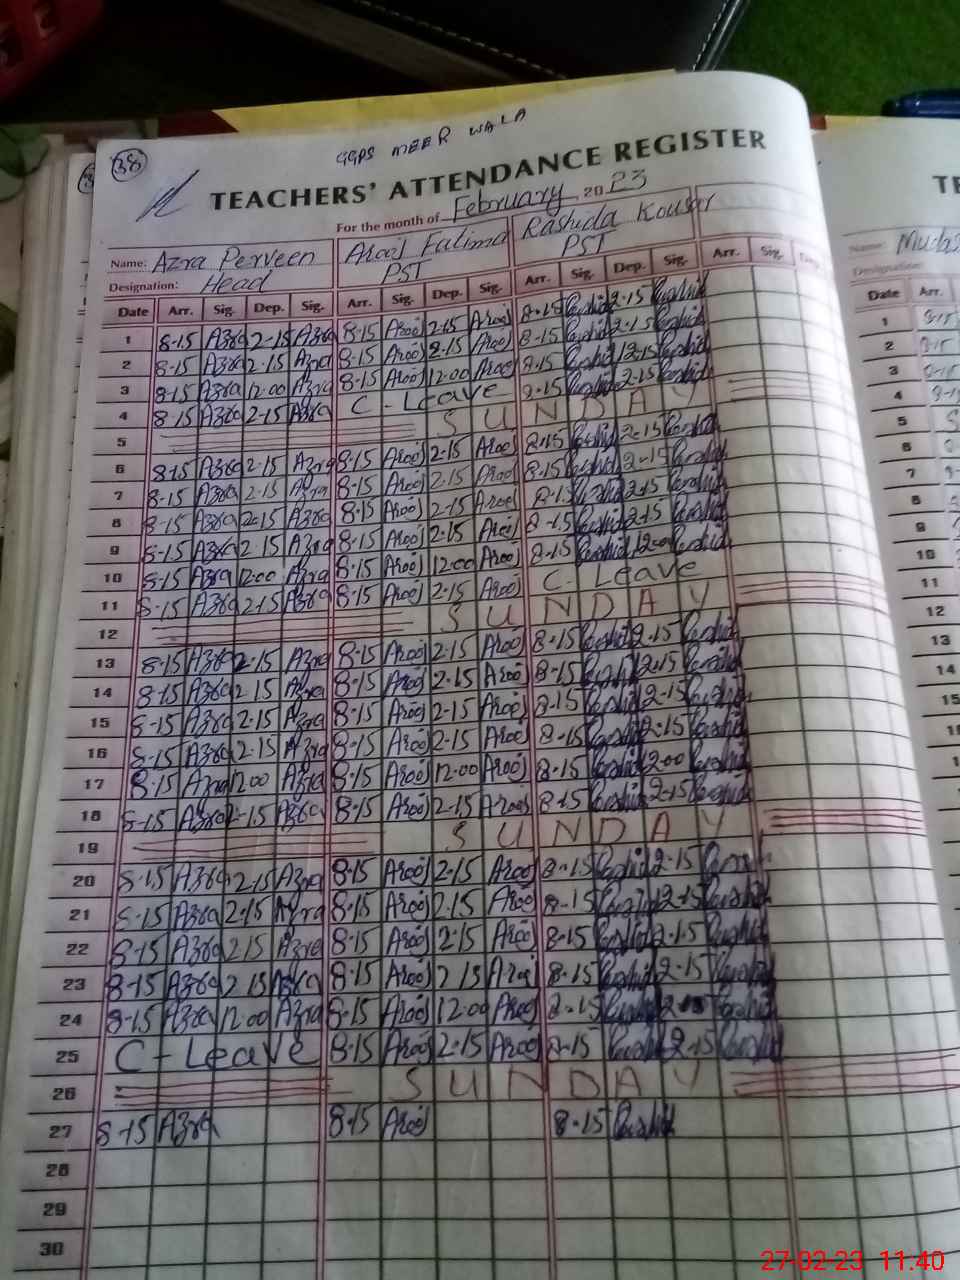 38
GGPS MEER WALA
TEACHERS' ATTENDANCE REGISTER
For the month of February, 2023
Name: Azra Perveen Arooj Fatima Rashida Kousar
Designation: Head PST PST
Date Arr. Sig. Dep. Sig. Arr. Sig. Dep. Sig. Arr. Sig. Dep. Sig. Arr. Sig.
1 8-15 Azra 2-15 Azra 8-15 Arooj 2-15 Arooj 8-15 2-15
2 8-15 Azra 2-15 Azra 8-15 Arooj 2-15 Arooj 8-15 2-15
3 8-15 Azra 12.00 Azra 8-15 Arooj 12.00 Arooj 8-15
4 8-15 Azra 2-15 Azra C-Leave 8-15 2-15
5 SUNDAY
6 8-15 Azra 2-15 Azra 8-15 Arooj 2-15 Arooj 8-15 2-15
7 8-15 Azra 2-15 Azra 8-15 Arooj 2-15 Arooj 8-15 2-15
8 8-15 Azra 2-15 Azra 8-15 Arooj 2-15 Arooj 8-15 2-15
9 8-15 Azra 2-15 Azra 8-15 Arooj 2-15 Arooj 8-15 2-15
10 8-15 Azra 12.00 Azra 8-15 Arooj 12.00 Arooj 8-15 12.00
11 8-15 Azra 2-15 Azra 8-15 Arooj 2-15 Arooj C-Leave
12 SUNDAY
13 8-15 Azra 2-15 Azra 8-15 Arooj 2-15 Arooj 8-15 2-15
14 8-15 Azra 2-15 Azra 8-15 Arooj 2-15 Arooj 8-15 2-15
15 8-15 Azra 2-15 Azra 8-15 Arooj 2-15 Arooj 8-15 2-15
16 8-15 Azra 2-15 Azra 8-15 Arooj 2-15 Arooj 8-15 2-15
17 8-15 Azra 12.00 Azra 8-15 Arooj 12.00 Arooj 8-15 12.00
18 8-15 Azra 2-15 Azra 8-15 Arooj 2-15 Arooj 8-15 2-15
19 SUNDAY
20 8-15 Azra 2-15 Azra 8-15 Arooj 2-15 Arooj 8-15 2-15
21 8-15 Azra 2-15 Azra 8-15 Arooj 2-15 Arooj 8-15 2-15
22 8-15 Azra 2-15 Azra 8-15 Arooj 2-15 Arooj 8-15 2-15
23 8-15 Azra 2-15 Azra 8-15 Arooj 2-15 Arooj 8-15 2-15
24 8-15 Azra 12.00 Azra 8-15 Arooj 12.00 Arooj 8-15
25 C-Leave 8-15 Arooj 2-15 Arooj 8-15 2-15
26 SUNDAY
27 8-15 Azra 8-15 Arooj 8-15
28
29
30
TE
Name:
Designation:
Date Arr.
1
2
3
4
5
6
7
8
9
10
11
12
13
14
15
27-02-23 11.40